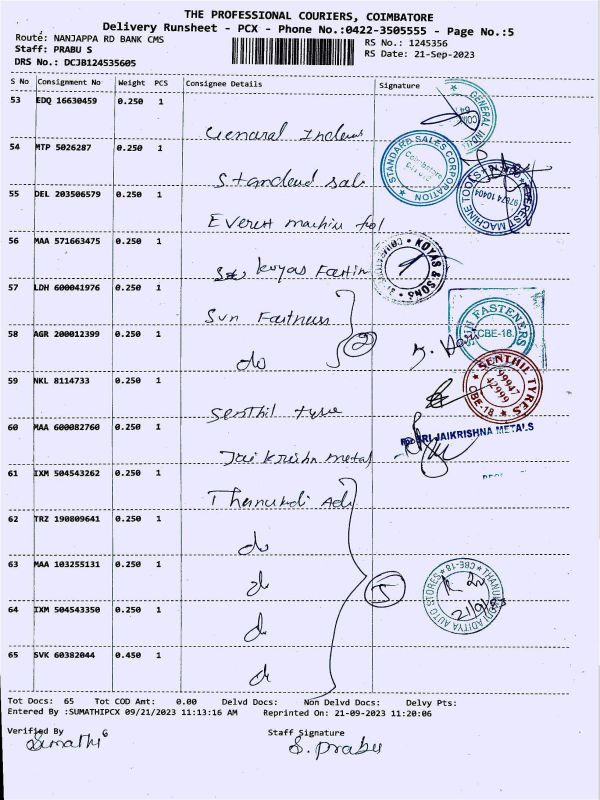 THE PROFESSIONAL COURIERS, COIMBATORE
Delivery Runsheet - PCX - Phone No.:0422-3505555 - Page No.:5
Route: NANJAPPA RD BANK CMS
RS No.: 1245356
Staff: PRABU S
RS Date: 21-Sep-2023
DRS No.: DCJB124535605
S No Consignment No Weight PCS Consignee Details Signature
53 EDQ 16630459 0.250 1
GENERAL INDUS
General Indus
54 MTP 5026287 0.250 1
STANDARD SALES CORPORATION
Coimbatore
Standerd sals
55 DEL 203506579 0.250 1
EVEREST MACHINE TOOLS
97874 10404
Everest machin tool
56 MAA 571663475 0.250 1
KOYAS & SONS
Koyas Fastin
57 LDH 600041976 0.250 1
Sun Fastness
FASTENERS
CBE-18.
58 AGR 200012399 0.250 1
do
2
59 NKL 8114733 0.250 1
SENTHIL TYRES
99947
42999
CBE-18.
Senthil tyre
60 MAA 600082760 0.250 1
SRI JAIKRISHNA METALS
Jai Krishna metal
61 IXM 504543262 0.250 1
Thanundi Adi
62 TRZ 190809641 0.250 1
do
63 MAA 103255131 0.250 1
do
5
THANUNDI ADITYA AUTO STORES * CBE-18 *
21/9/23
64 IXM 504543350 0.250 1
do
65 SVK 60382044 0.450 1
do
Tot Docs: 65 Tot COD Amt: 0.00 Delvd Docs: Non Delvd Docs: Delvy Pts:
Entered By :SUMATHIPCX 09/21/2023 11:13:16 AM Reprinted On: 21-09-2023 11:20:06
Verified By Staff Signature
Sumathi S. Prabu